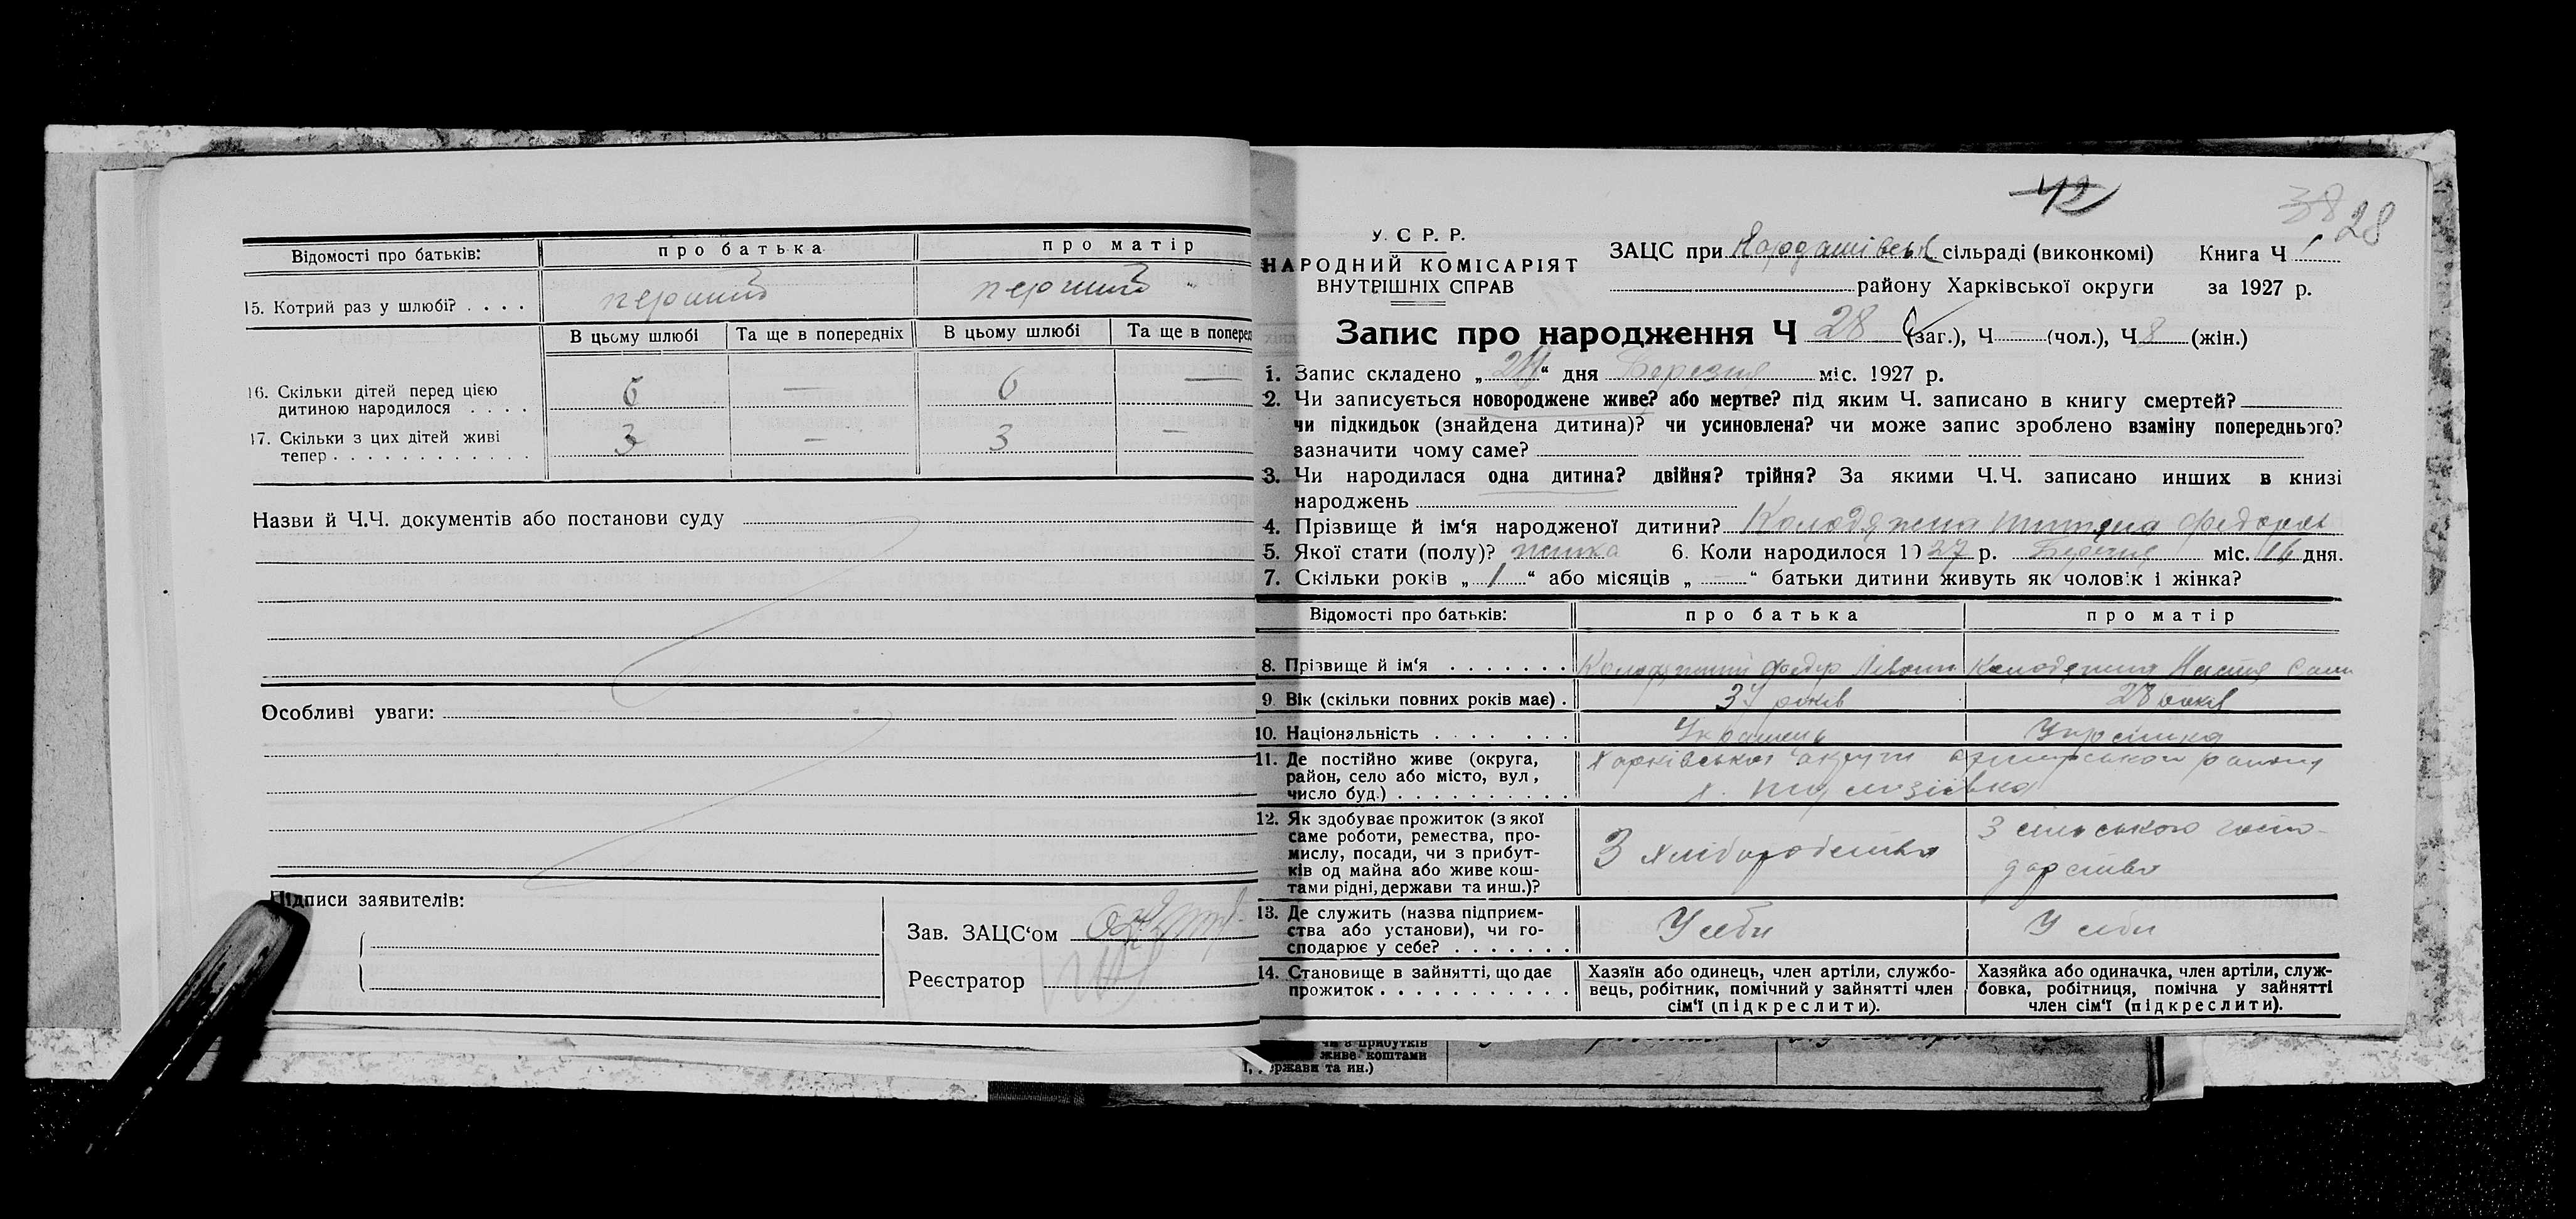 Відомості про батьків: про батька про матір
15. Котрий раз у шлюбі? . . . . перший перший
В цьому шлюбі Та ще в попередніх В цьому шлюбі Та ще в поперед
16. Скільки дітей перед цією 6 — 6 —
дитиною народилося . . . .
17. Скільки з цих дітей живі 3 — 3 —
тепер . . . . . . . . . . . .
Назви й Ч.Ч. документів або постанови суду
Особливі уваги:
Підписи заявителів:
Зав. ЗАЦС‘ом
Реєстратор
42
38 28
У. С Р. Р.
НАРОДНИЙ КОМІСАРІЯТ
ВНУТРІШНІХ СПРАВ
ЗАЦС при сільраді (виконкомі) Книга Ч 1
району Харківської округи за 1927 р.
Запис про народження Ч 28 (заг.), Ч — (чол.), Ч 8 (жін.)
1. Запис складено „ “ дня Березня міс. 1927 р.
2. Чи записується новороджене живе? або мертве? під яким Ч. записано в книгу смертей?
чи підкидьок (знайдена дитина)? чи усиновлена? чи може запис зроблено взаміну попереднього?
зазначити чому саме?
3. Чи народилася одна дитина? двійня? трійня? За якими Ч.Ч. записано инших в книзі
народжень
4. Прізвище й ім‘я народженої дитини?
5. Якої стати (полу)? жінка 6. Коли народилося 1927 р. Березня міс. 16 дня.
7. Скільки років „ 1 “ або місяців „ — “ батьки дитини живуть як чоловік і жінка?
Відомості про батьків: про батька про матір
8. Прізвище й ім‘я . . . . . . . Федір Настя
9. Вік (скільки повних років має) . 37 років 28 років
10. Національність . . . . . . . Українець Українка
11. Де постійно живе (округа, Харківської округи району
район, село або місто, вул,
число буд.) . . . . . . . . . . х.
12. Як здобуває прожиток (з якої З сільського госпо-
саме роботи, ремества, про-
мислу, посади, чи з прибут- З хліборобства дарства
ків од майна або живе кош-
тами рідні, держави та инш.)?
13. Де служить (назва підприєм- У себи У себи
ства або установи), чи го-
сподарює у себе? . . . . . . .
14. Становище в зайнятті, що дає Хазяїн або одинець, член артіли, службо- Хазяйка або одиначка, член артіли, служ-
прожиток . . . . . . . . . . . вець, робітник, помічний у зайнятті член бовка, робітниця, помічна у зайнятті
сім‘ї (підкреслити). член сім‘ї (підкреслити).
чи з прибутків
живе коштами
ержави та ин.)